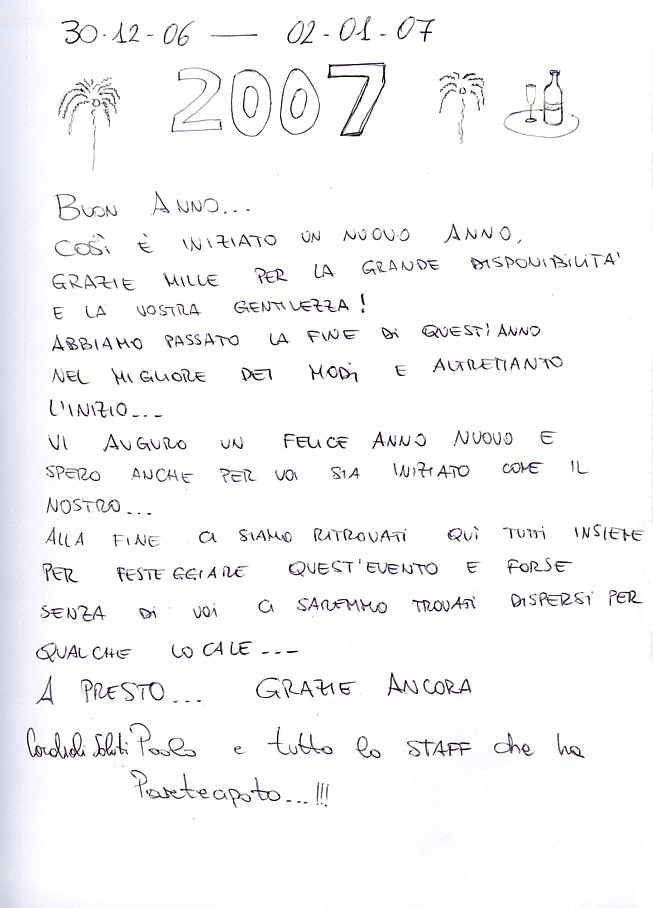 30-12-06 — 02-01-07
2007
BUON ANNO...
COSÌ È INIZIATO UN NUOVO ANNO,
GRAZIE MILLE PER LA GRANDE DISPONIBILITA'
E LA VOSTRA GENTILEZZA!
ABBIAMO PASSATO LA FINE DI QUEST'ANNO
NEL MIGLIORE DEI MODI E ALTRETTANTO
L'INIZIO...
VI AUGURO UN FELICE ANNO NUOVO E
SPERO ANCHE PER VOI SIA INIZIATO COME IL
NOSTRO...
ALLA FINE CI SIAMO RITROVATI QUÌ TUTTI INSIEME
PER FESTEGGIARE QUEST'EVENTO E FORSE
SENZA DI VOI CI SAREMMO TROVATI DISPERSI PER
QUALCHE LOCALE...
A PRESTO... GRAZIE ANCORA
Cordiali Saluti Paolo e tutto lo STAFF che ha
Partecipato...!!!